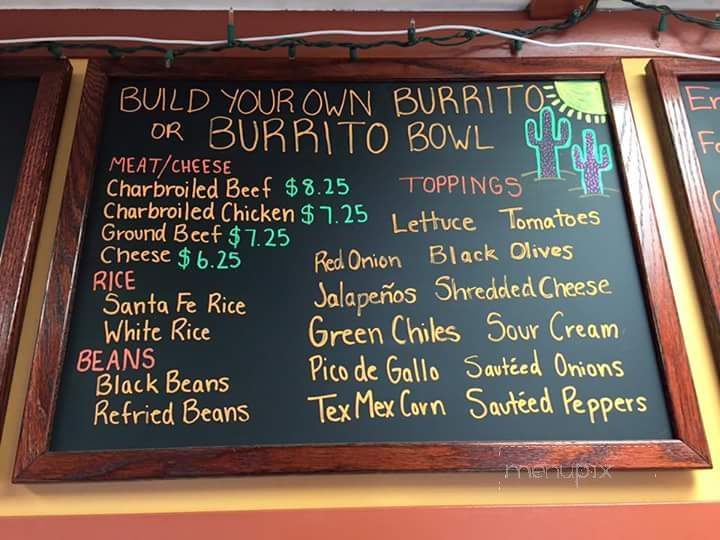 BUILD YOUR OWN BURRITO
OR BURRITO BOWL
MEAT/CHEESE
Charbroiled Beef $8.25
Charbroiled Chicken $7.25
Ground Beef $7.25
Cheese $6.25
RICE
Santa Fe Rice
White Rice
BEANS
Black Beans
Refried Beans
TOPPINGS
Lettuce Tomatoes
Red Onion Black Olives
Jalapeños Shredded Cheese
Green Chiles Sour Cream
Pico de Gallo Sautéed Onions
Tex Mex Corn Sautéed Peppers
menupix